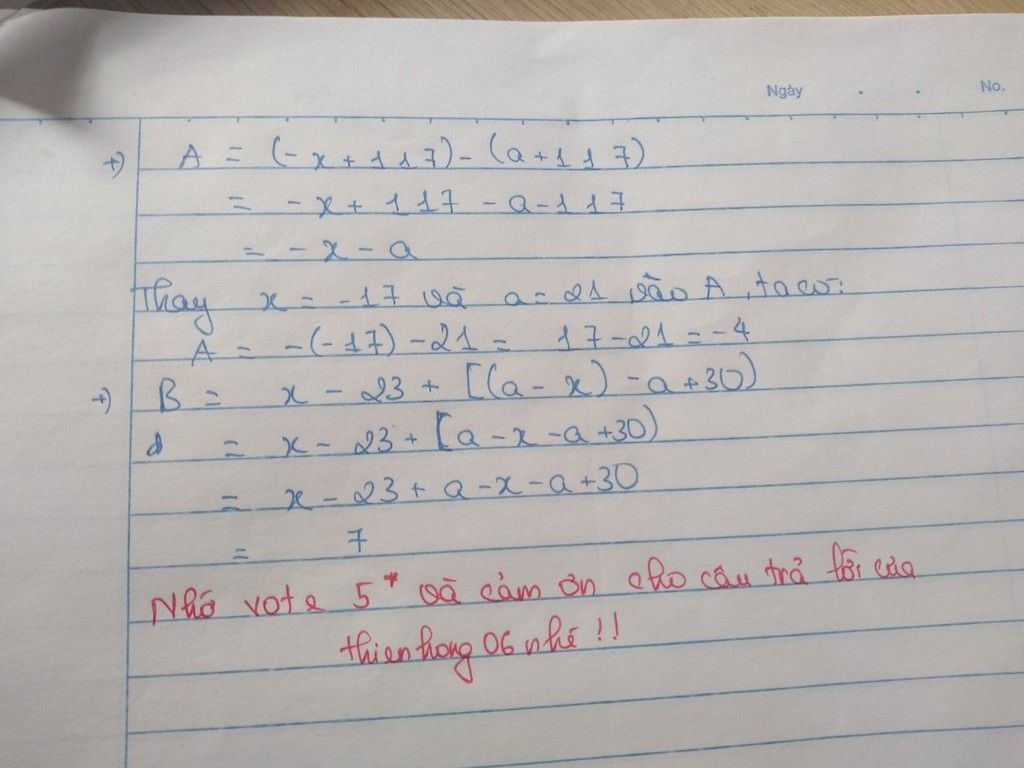 Ngày . . No.
+) A = (-x+117)-(a+117)
= -x+117-a-117
= -x-a
Thay x = -17 và a=21 vào A, ta có:
A = -(-17)-21 = 17-21=-4
+) B = x-23+[(a-x)-a+30)
= x-23+[a-x-a+30)
= x-23+a-x-a+30
= 7
Nhớ vote 5* và cảm ơn cho câu trả lời của
thienhong06 nhé!!